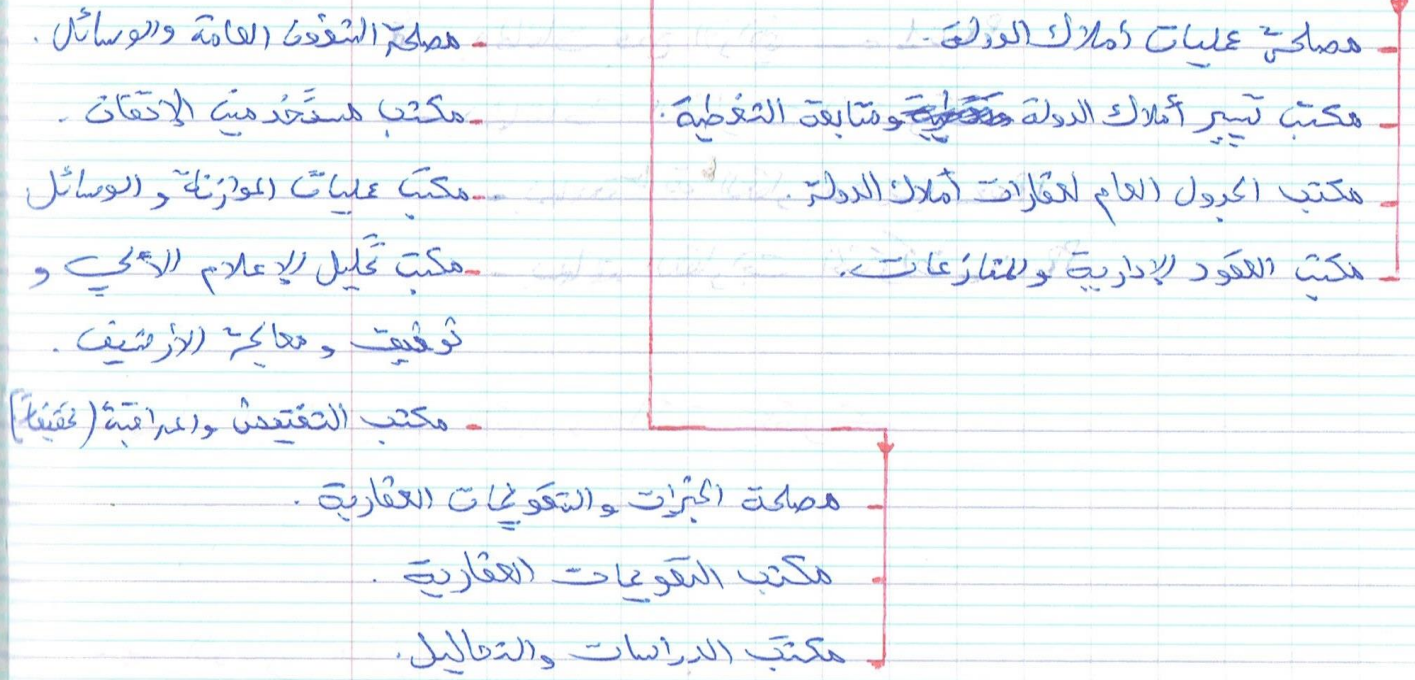 - مصلحة عمليات أملاك الدولة.
- مكتب تسيير أملاك الدولة ومتابعة التغطية.
- مكتب الجدول العام لعقارات أملاك الدولة.
- مكتب العقود الإدارية والمنازعات.
- مصلحة الشؤون العامة والوسائل.
- مكتب مستخدمين الإتقان.
- مكتب عمليات الموازنة والوسائل
- مكتب تحليل الإعلام الآلي و
توثيق ومعالجة الأرشيف.
- مكتب التفتيش والمراقبة
- مصلحة الخبرات والتقويمات العقارية.
- مكتب التقويمات العقارية.
- مكتب الدراسات والتحاليل.